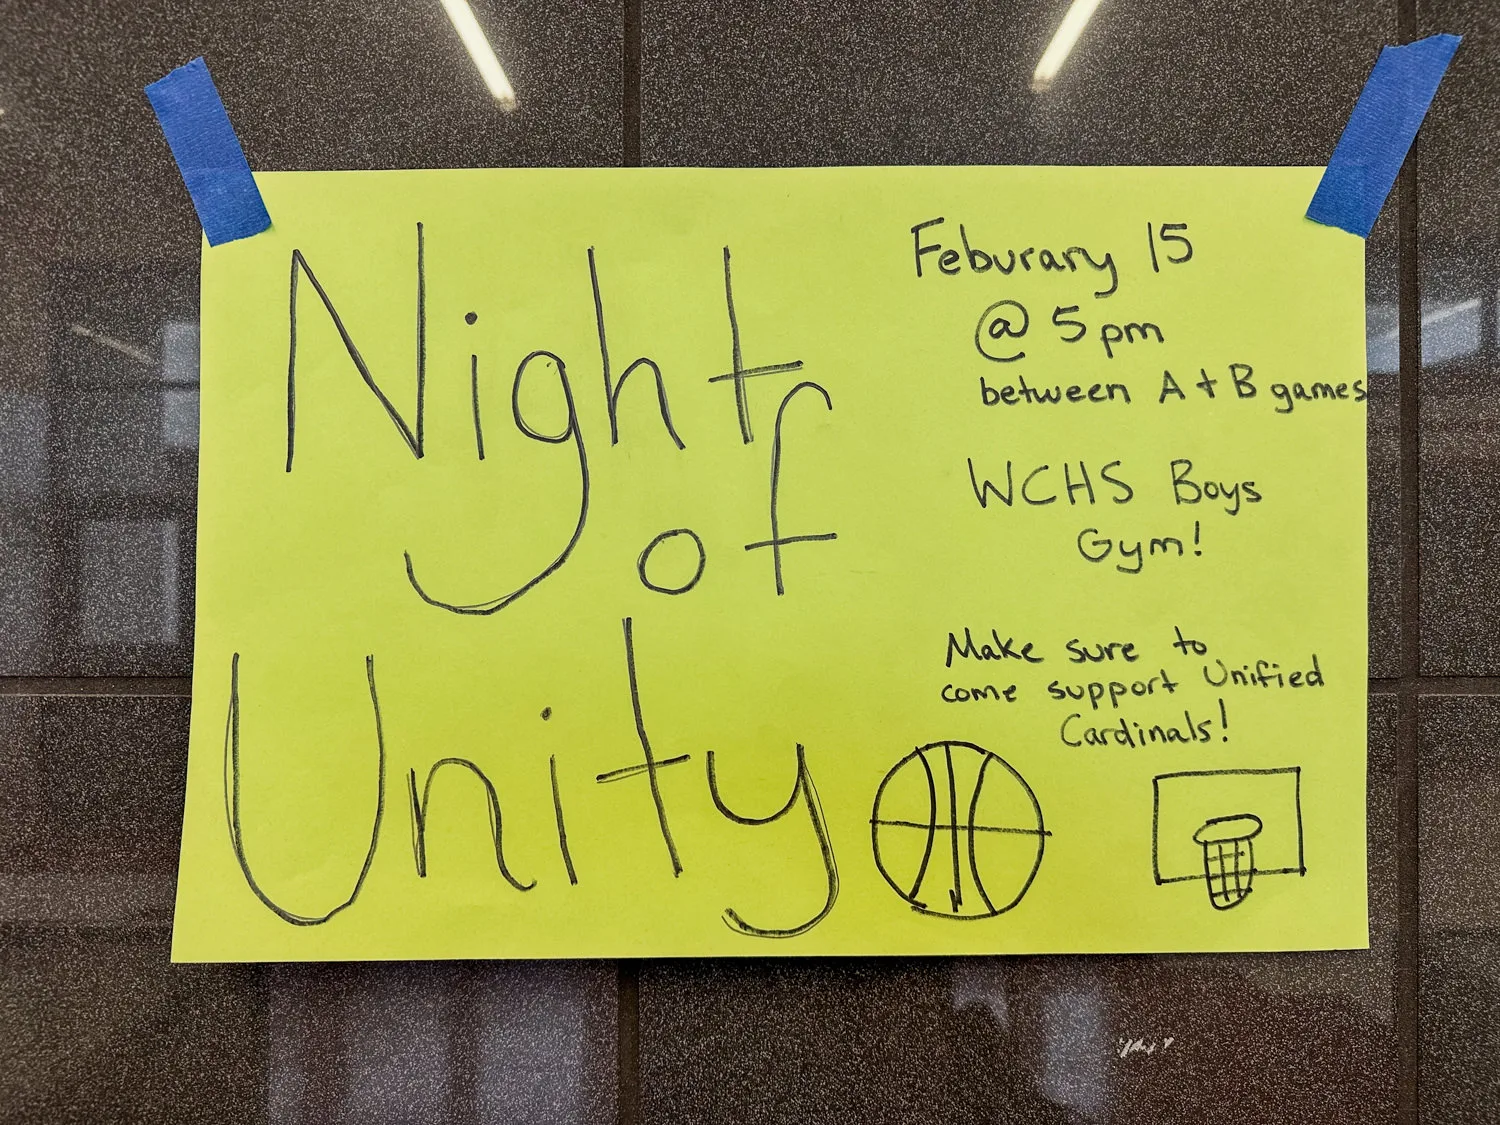 Night
of
Unity
Feburary 15
@ 5pm
between A + B games
WCHS Boys
Gym!
Make sure to
come support Unified
Cardinals!